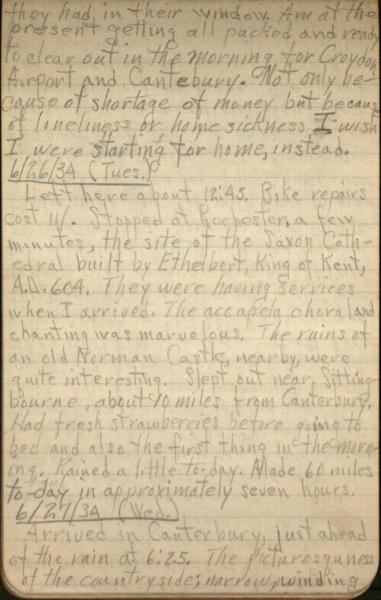 they had in their window. Am at the
present getting all packed and ready
to clear out in the morning for Croydon
Airport and Cantebury. Not only be-
cause of shortage of money but because
of loneliness or home sickness I wish
I were starting for home, instead.
6/26/34 (Tues.)
Left here about 12:45. Bike repairs
cost 11/. Stopped at Rochester, a few
minutes, the site of the Saxon Cath-
edral built by Ethelbert, King of Kent,
A.D. 604. They were having services
when I arrived. The accapela choral and
chanting was marvelous. The ruins of
an old Norman Castle, nearby, were
quite interesting. Slept out near Sitting-
bourne, about 10 miles from Canterbury.
Had fresh strawberries before going to
bed and also the first thing in the morn-
ing. Rained a little to-day. Made 60 miles
to-day in approximately seven hours.
6/27/34 (Wed.)
Arrived in Canterbury, just ahead
of the rain at 6:25. The picturesquness
of the countryside; narrow, winding